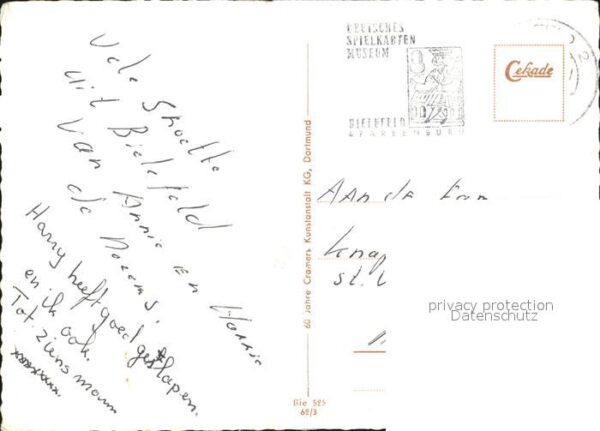 Vele Groetten
uit Bielefeld
van Annie en Harrie
de Nozems.
Harry heeft goed geslapen.
en ik ook.
Tot ziens mam
xxxxxxxx.
60 Jahre Cramers Kunstanstalt KG, Dortmund
Bie 525
62/3
DEUTSCHES
SPIELKARTEN
MUSEUM
BIELEFELD
SPARRENBURG
Cekade
AAN de Fam
Knap
St.
privacy protection
Datenschutz